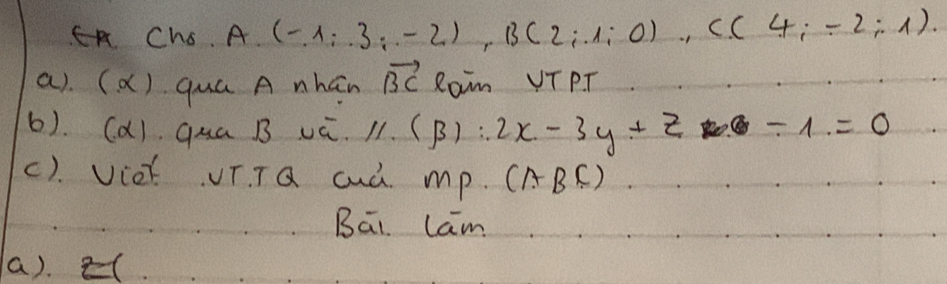 Cho A (-1; 3; -2), B(2; 1; 0), C( 4; -2; 1).
a). (α) qua A nhận BC→ làm VTPT
b). (α). qua B và // (β): 2x - 3y + z - 1 = 0
c). Viết VTTQ của mp. (ABC)
Bài làm
a).